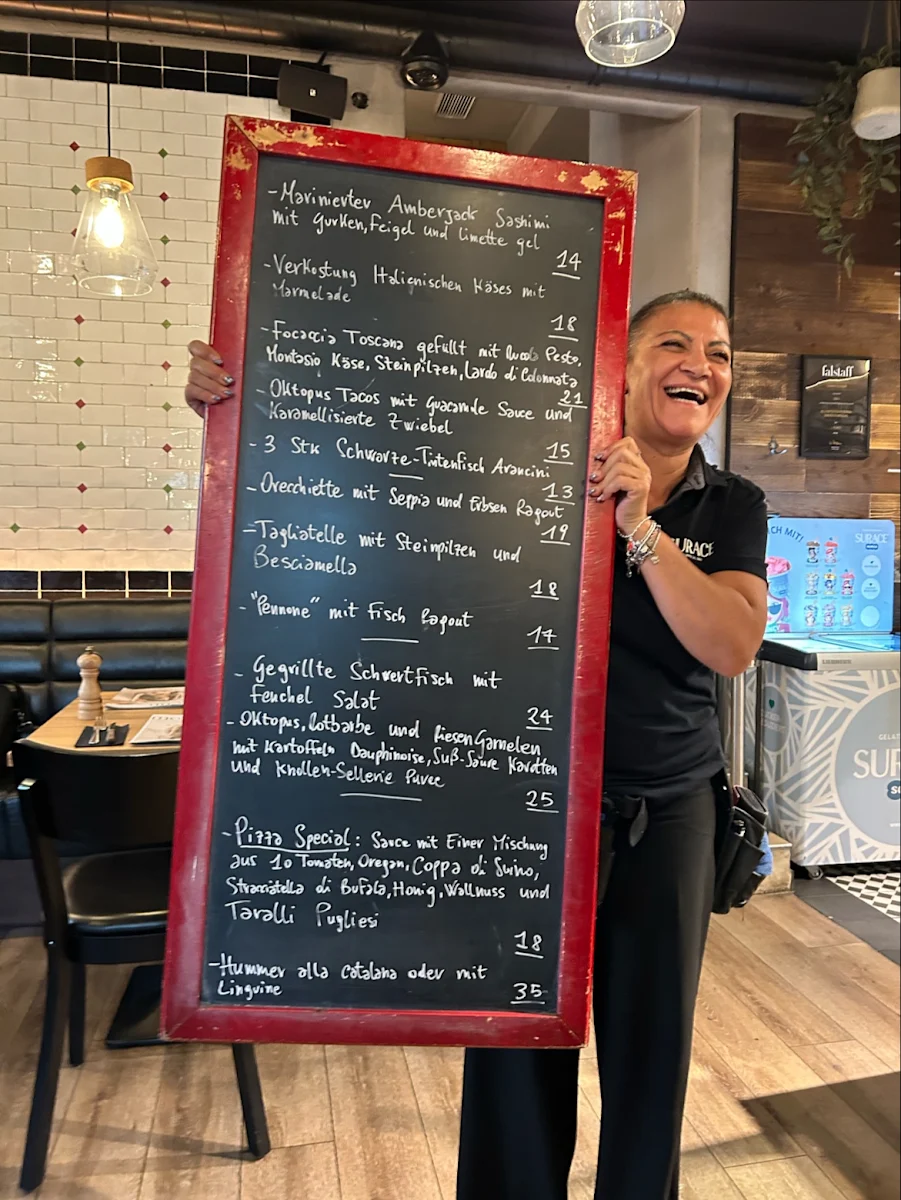 - Marinierter Amberjack Sashimi
mit Gurken, Feigel und limette gel
14
- Verkostung Italienischen Käses mit
Marmelade
18
- Focaccia Toscana gefüllt mit Rucola Pesto,
Montasio Käse, Steinpilzen, Lardo di Colonnata
21
- Oktopus Tacos mit Guacamole Sauce und
Karamellisierte Zwiebel
15
- 3 Stk Schwarze-Tintenfisch Arancini
13
- Orecchiette mit Seppia und Erbsen Ragout
19
- Tagliatelle mit Steinpilzen und
Besciamella
18
- "Pennone" mit Fisch Ragout
17
- Gegrillte Schwertfisch mit
Fenchel Salat
24
- Oktopus, Rotbarbe und Riesen Garnelen
mit Kartoffeln Dauphinoise, Süß-Saure Karotten
und Knollen-Sellerie Puree
25
- Pizza Special: Sauce mit Einer Mischung
aus 10 Tomaten, Oregan, Coppa di Suino,
Stracciatella di Bufala, Honig, Wallnuss und
Taralli Pugliesi
18
- Hummer alla catalana oder mit
Linguine
35
SURACE
falstaff
CH MIT!
SURACE
LIEBHERR
GELAT
SUR